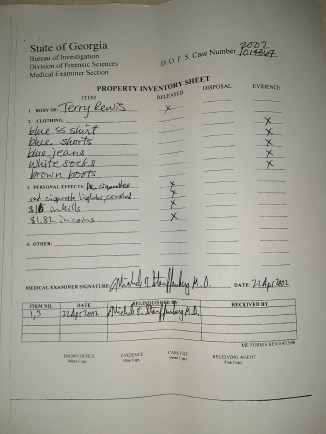 State of Georgia
Bureau of Investigation
Division of Forensic Sciences
Medical Examiner Section
D.O.F.S. Case Number 2002
PROPERTY INVENTORY SHEET
ITEM RELEASED DISPOSAL EVIDENCE
1. BODY OF: Terry Rewis X
2. CLOTHING:
blue ss shirt X
blue shorts X
blue jeans X
white socks X
brown boots X
3. PERSONAL EFFECTS: cigarette X
red cigarette lighter, X
$16 in bills X
$1.82 in coins X
6. OTHER:
MEDICAL EXAMINER SIGNATURE: M.D. DATE: 22 Apr 2002
ITEM NO. DATE RELINQUISHED BY RECEIVED BY
1,3 22 Apr 2002 M.D.
FRONT OFFICE EVIDENCE CASE FILE RECEIVING AGENT
White Copy Blue Copy Green Copy Pink Copy